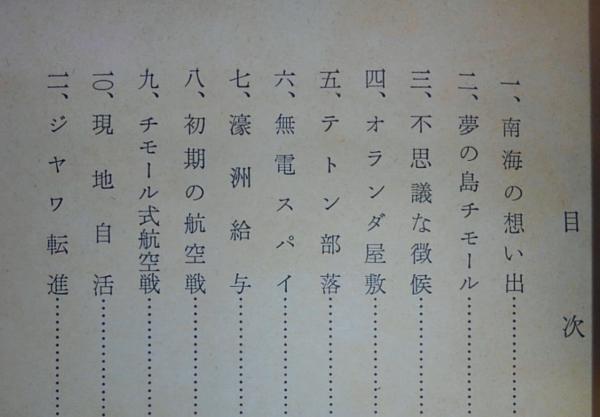 目次
一、南海の想い出……………
二、夢の島チモール……………
三、不思議な徴候……………
四、オランダ屋敷……………
五、テトン部落……………
六、無電スパイ……………
七、濠洲給与……………
八、初期の航空戦……………
九、チモール式航空戦……………
一〇、現地自活……………
一一、ジヤワ転進……………